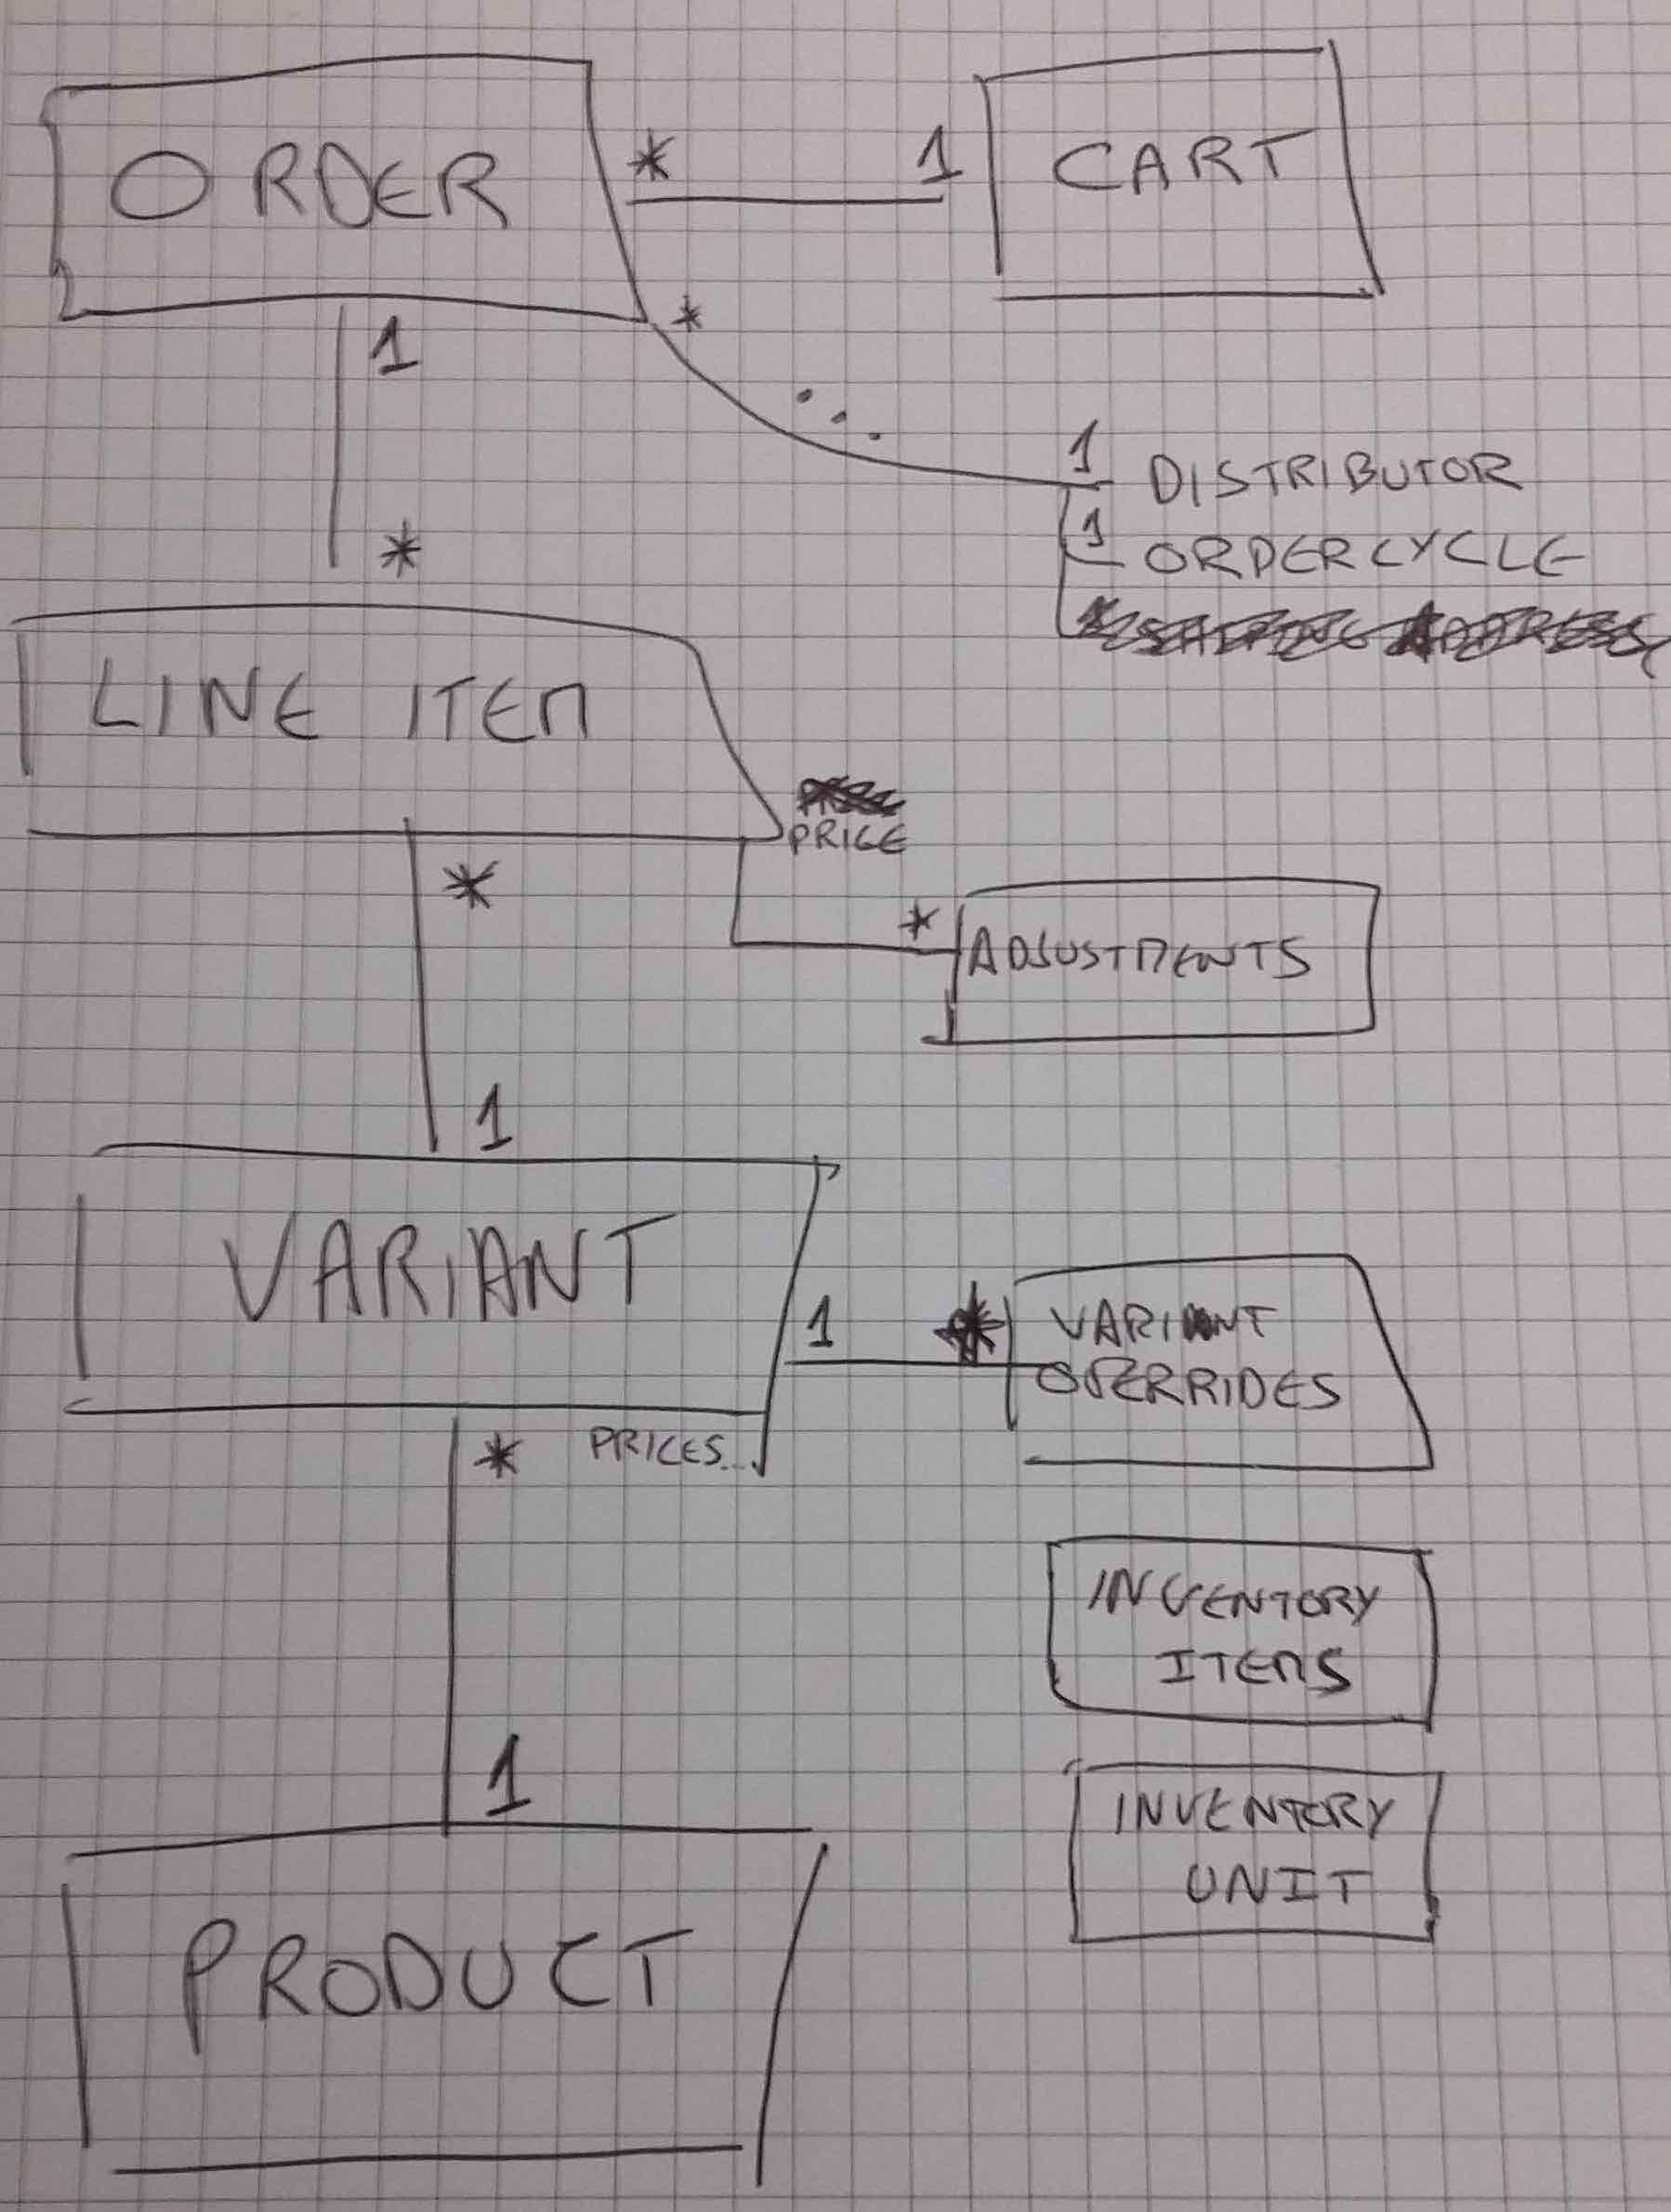 ORDER
* 1
CART
1
*
*
1 DISTRIBUTOR
1 ORDERCYCLE
LINE ITEM
PRICE
*
1
* ADJUSTMENTS
VARIANT
1 *
VARIANT
OVERRIDES
* PRICES...
1
INVENTORY
ITEMS
INVENTORY
UNIT
PRODUCT